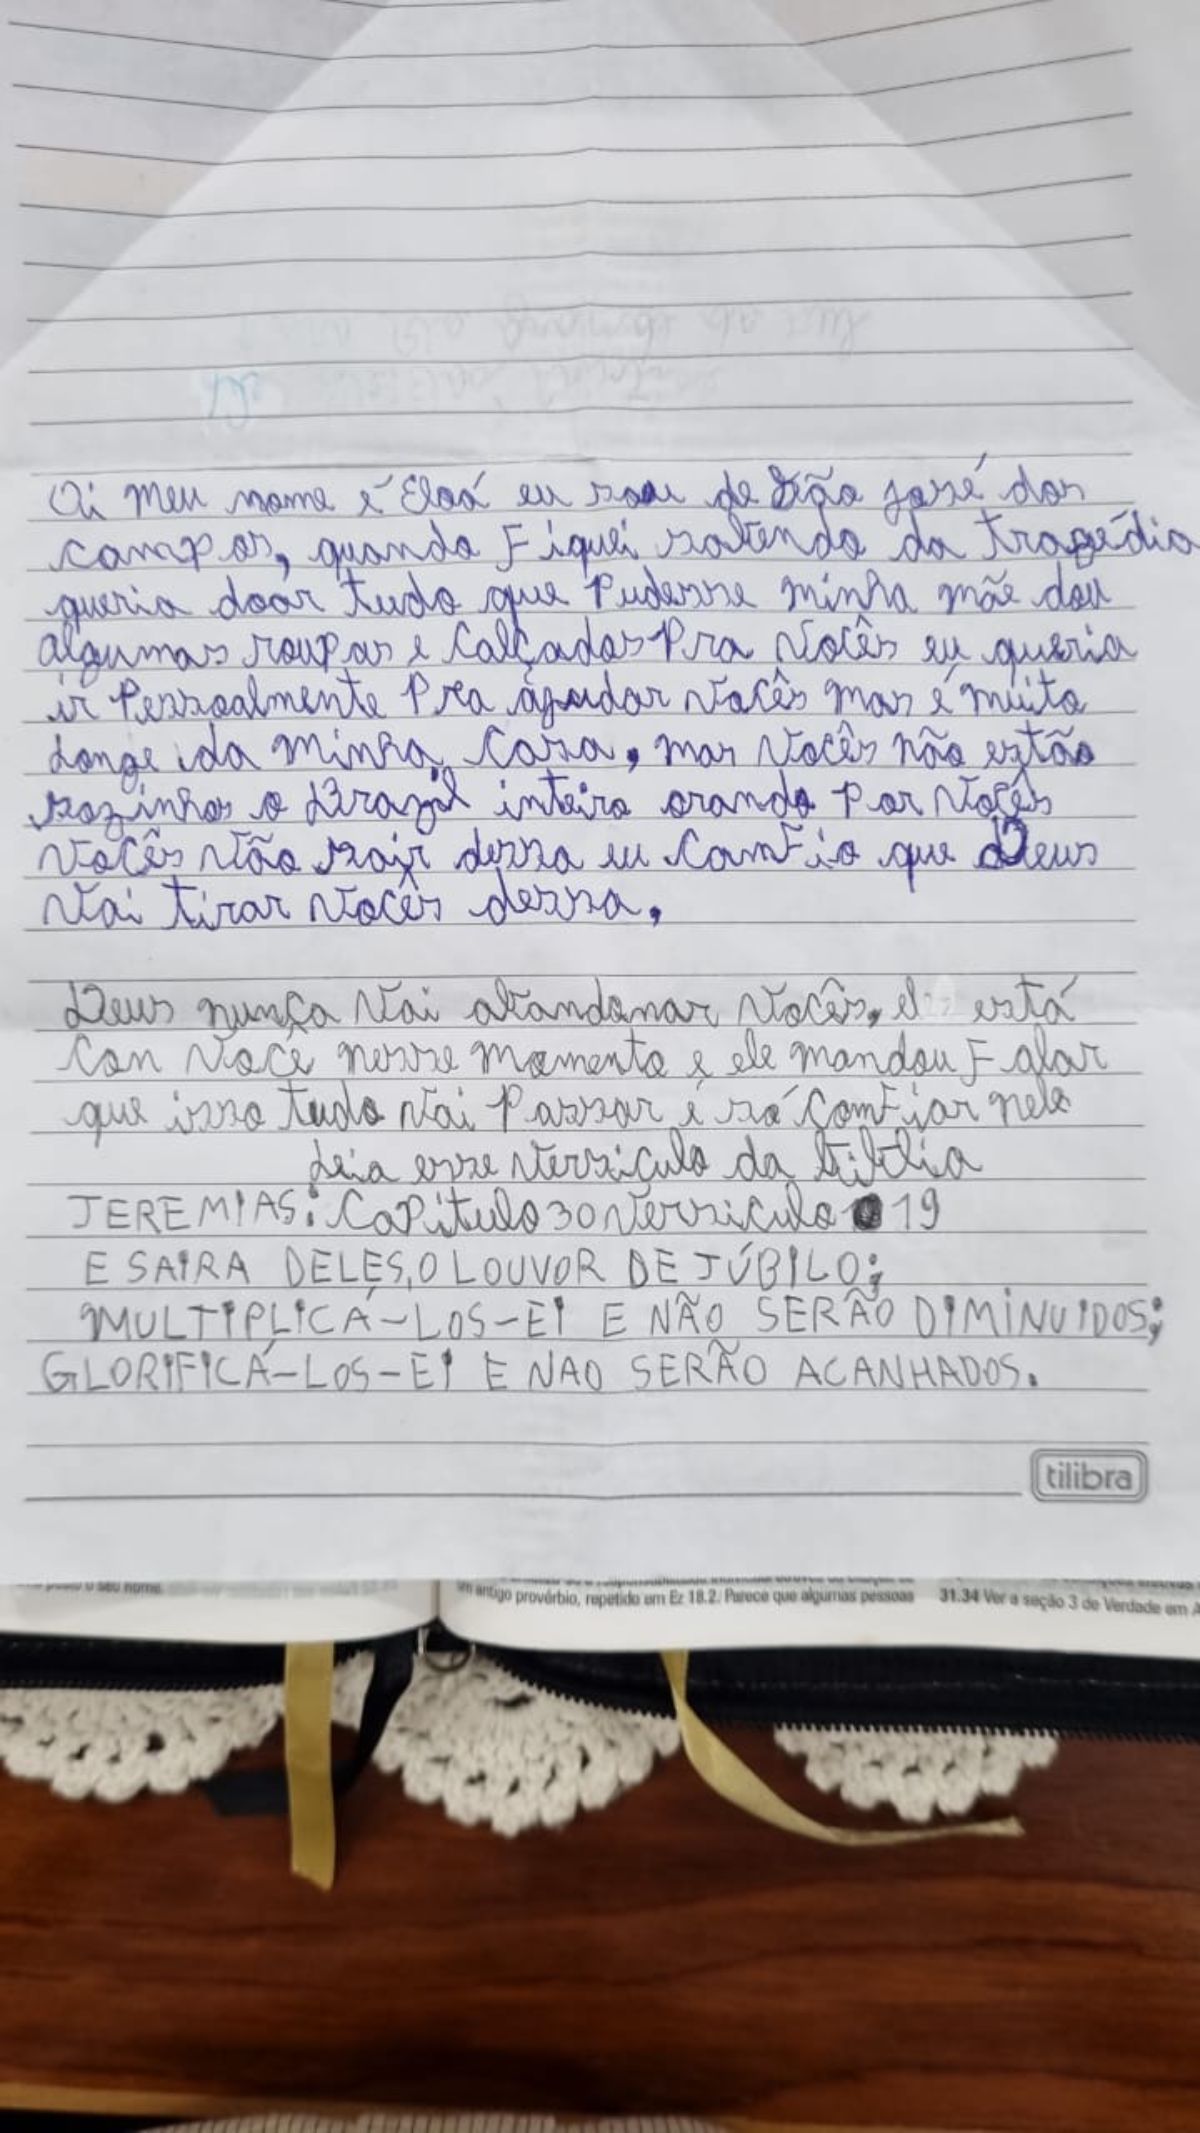 Oi meu nome é Eloá eu sou de São José dos
campos, quando Fiquei sabendo da tragédia
queria doar tudo que Pudesse minha mãe dou
algumas roupas e Calçados Pra Vocês eu queria
ir Pessoalmente Pra ajudar Vocês mas é muito
Longe da minha Casa, mas Vocês não estão
sozinhos o Brazil inteiro orando Por Vocês
Vocês Vão sair dessa eu ComFio que Deus
Vai Tirar Vocês dessa,
Deus nunca Vai abandonar Vocês, ele está
Con Você nesse momento e ele mandou Falar
que isso tudo Vai Passar é só ComFiar nele
Leia esse Versiculo da Biblia
JEREMIAS: Capítulo 30 Versiculo 19
E SAIRA DELES, O LOUVOR DE JÚBILO;
MULTIPLICÁ-LOS-EI E NÃO SERÃO DIMINUIDOS;
GLORIFICÁ-LOS-EI E NAO SERÃO ACANHADOS.
tilibra
o seu nome.
um antigo provérbio, repetido em Ez 18.2. Parece que algumas pessoas
31.34 Ver a seção 3 de Verdade em